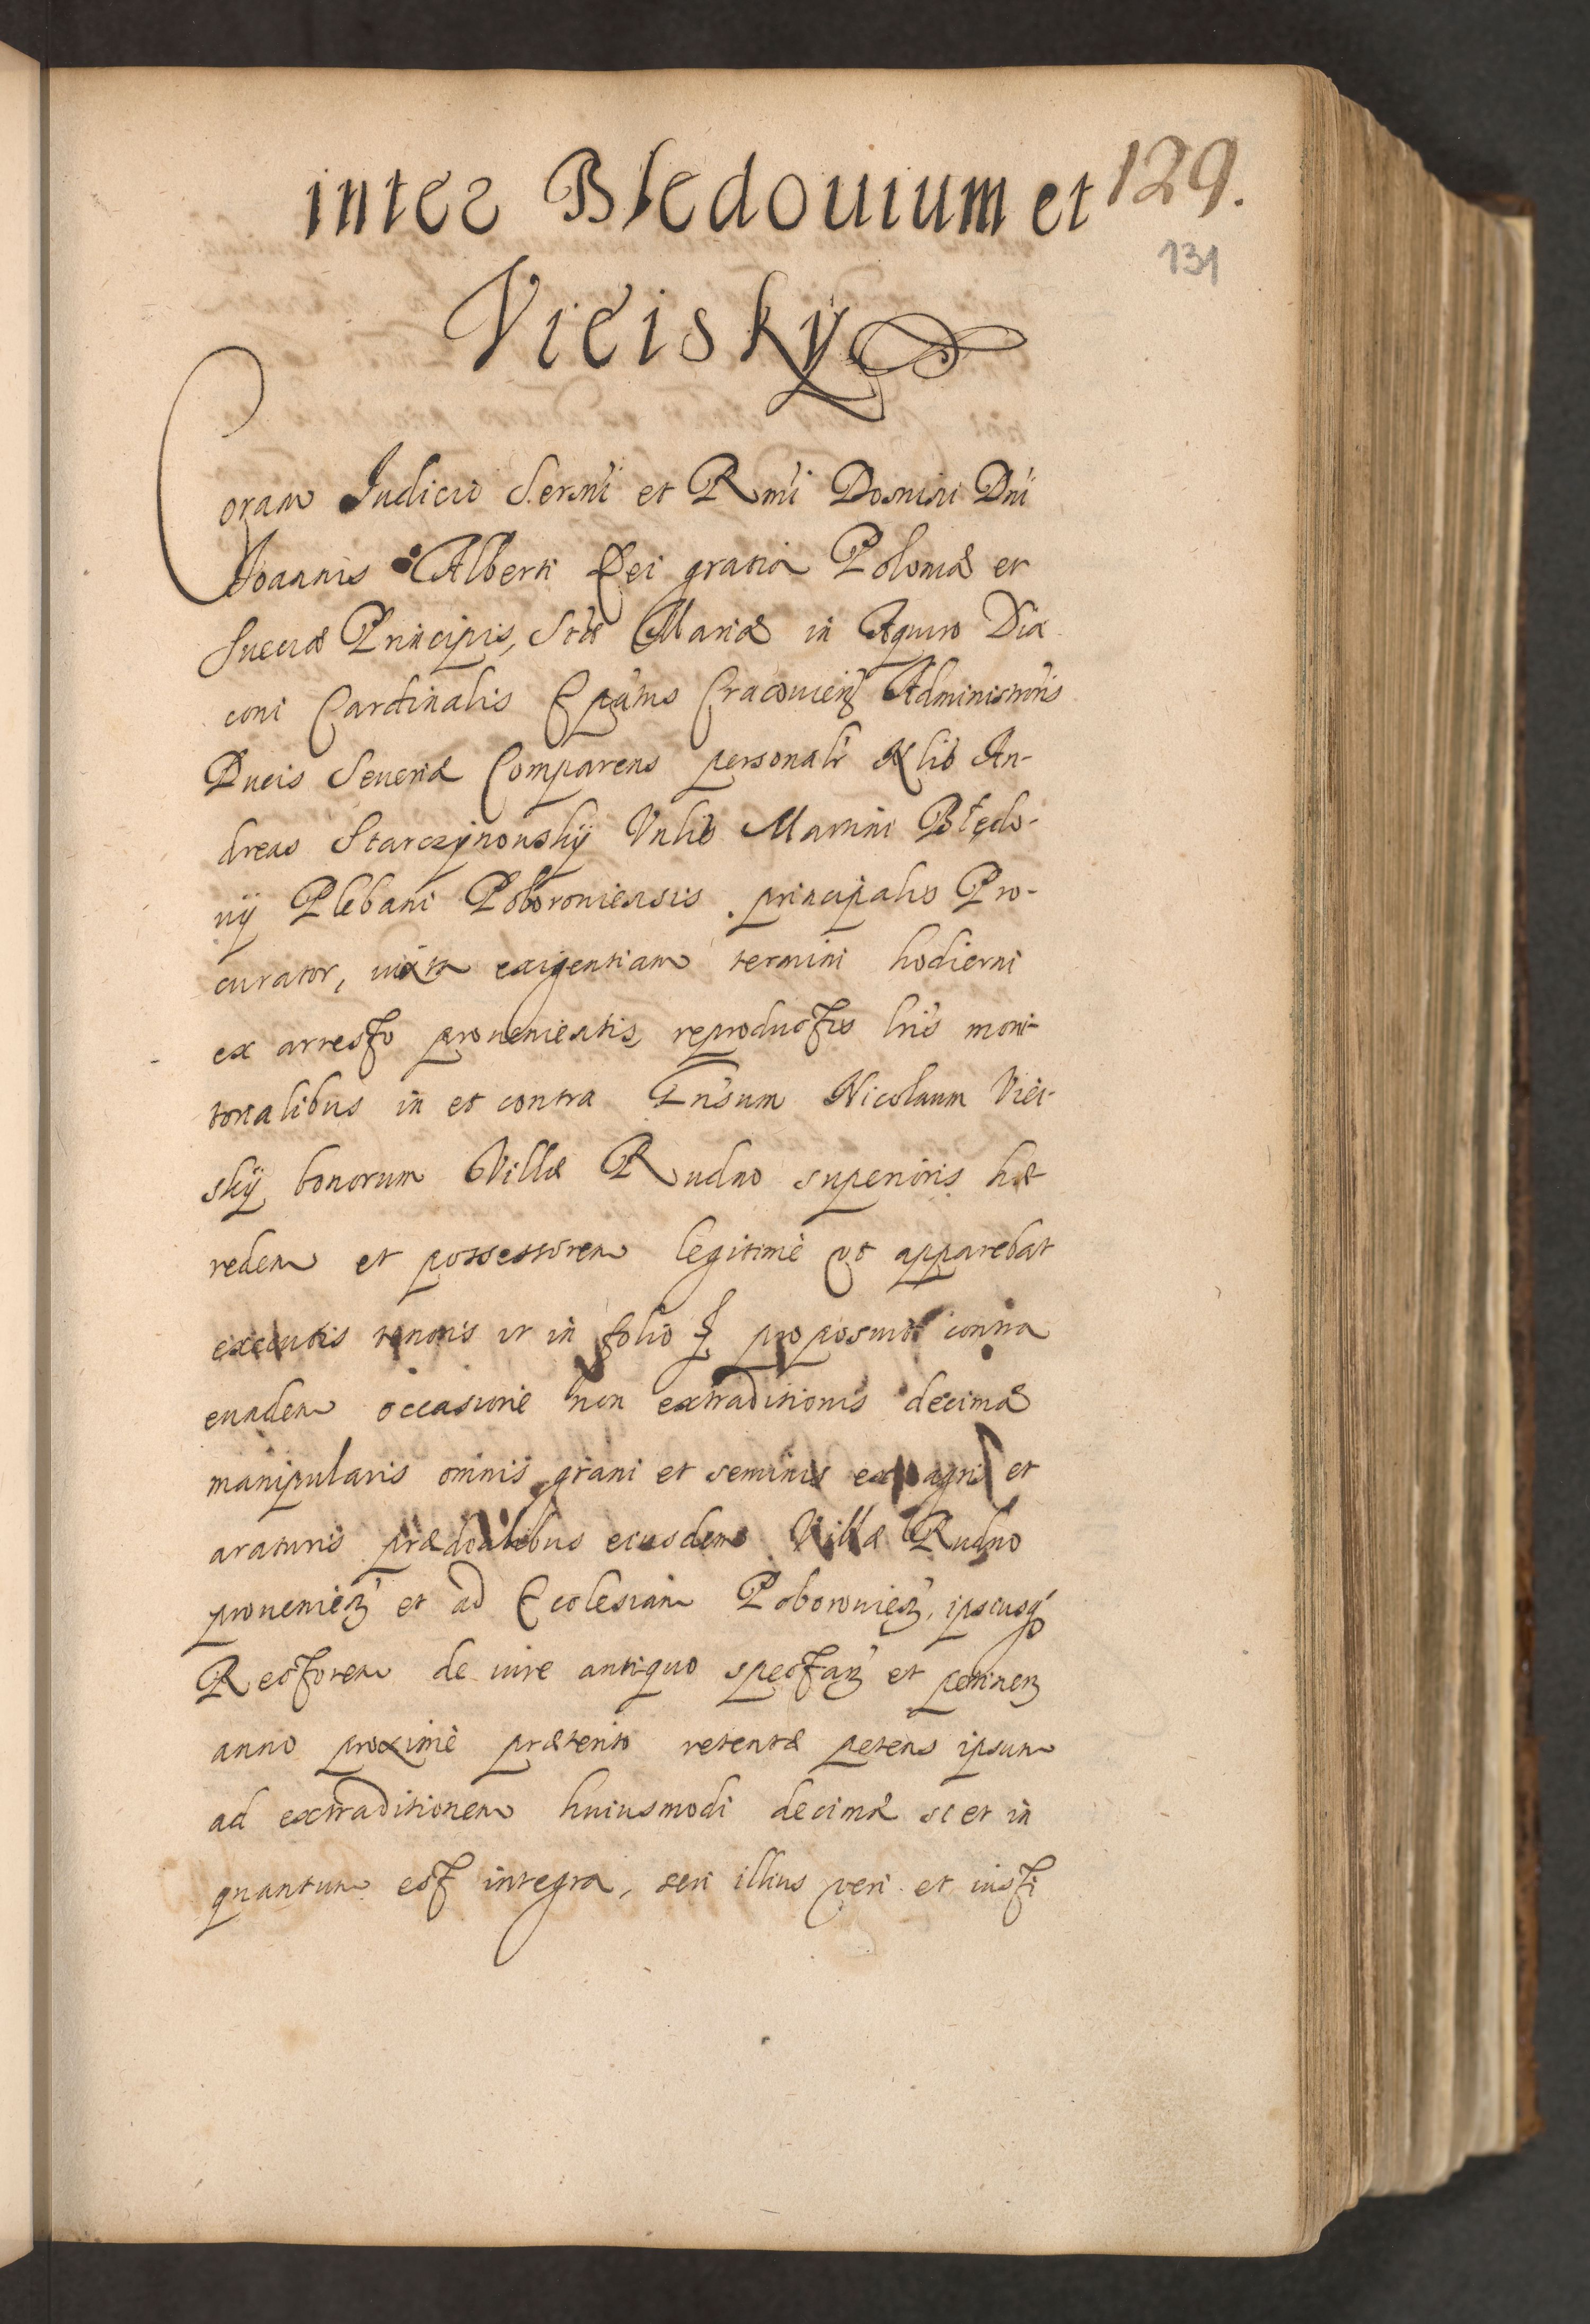 inter Bledouium et 129.
131
Vieisky
Coram Iudicio Sermi et Rmi Domini Dni
Ioannis Alberti Dei gratia Poloniæ et
Sueciæ Principis, Stæ Mariæ in Aquiro Dia
coni Cardinalis Epatus Cracouien Administris
Ducis Seueriæ Comparens personalr Nlis An-
dreas Starczynowskÿ Vnlis Martini Błędo-
uÿ Plebani Poboroniensis principalis Pro-
curator, iuxta exigentiam termini hodierni
ex arresto prouenientis reproductis lris moni-
torialibus in et contra Gnsum Nicolaum Viei-
skÿ bonorum Villæ Rudno superioris hæ
redem et possessorem legitimè vt apparebat
executis tenoris vt in folio proposuit contra
eundem occasione non extraditionis decimæ
manipularis omnis grani et seminis ex agris et
araturis prædialibus eiusdem Villæ Rudno
prouenien et ad Ecclesiam Poboronien, ipsiusq
Rectorem de iure antiquo spectan et pertinen
anno proximè præterito retentæ petens ipsum
ad extraditionem huiusmodi decimæ si et in
quantum est integra, seu illius veri et iusti